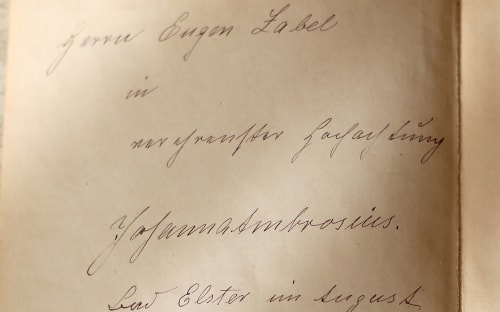 Herrn Eugen Zabel
in
verehrenster Hochachtung
Johanna Ambrosius.
Bad Elster im August